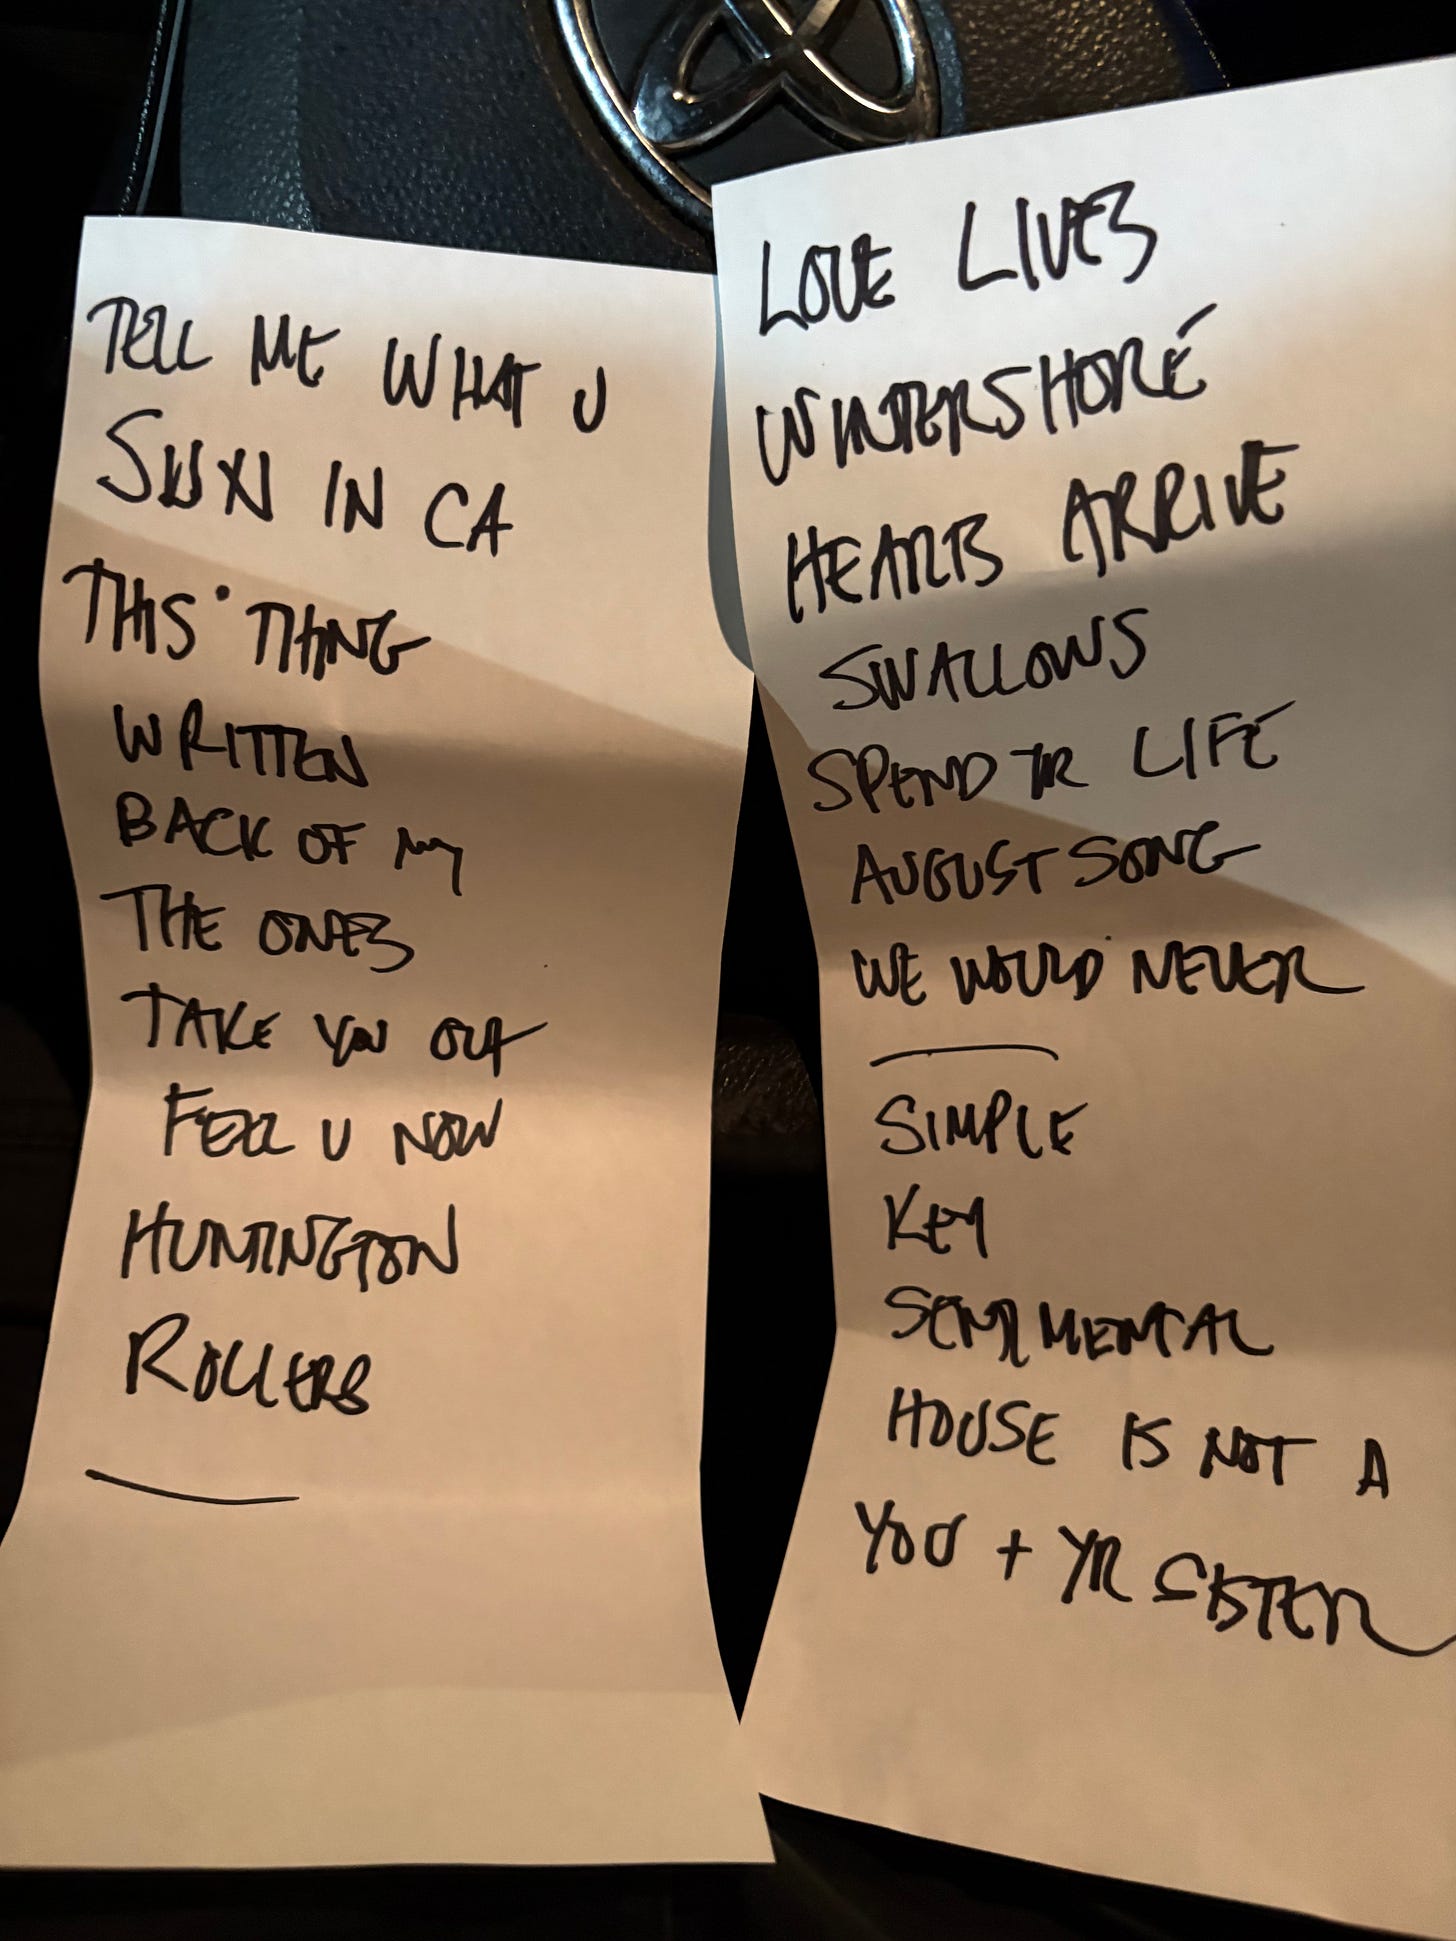 TELL ME WHAT U
SUN IN CA
THIS THING
WRITTEN
BACK OF MY
THE ONES
TAKE YOU OUT
FEEL U NOW
HUNTINGTON
ROLLERS
LOVE LIVES
WINTERSHORE
HEARTS ARRIVE
SWALLOWS
SPEND YR LIFE
AUGUST SONG
WE WOULD NEVER
SIMPLE
KEY
SENTIMENTAL
HOUSE IS NOT A
YOU + YR SISTER